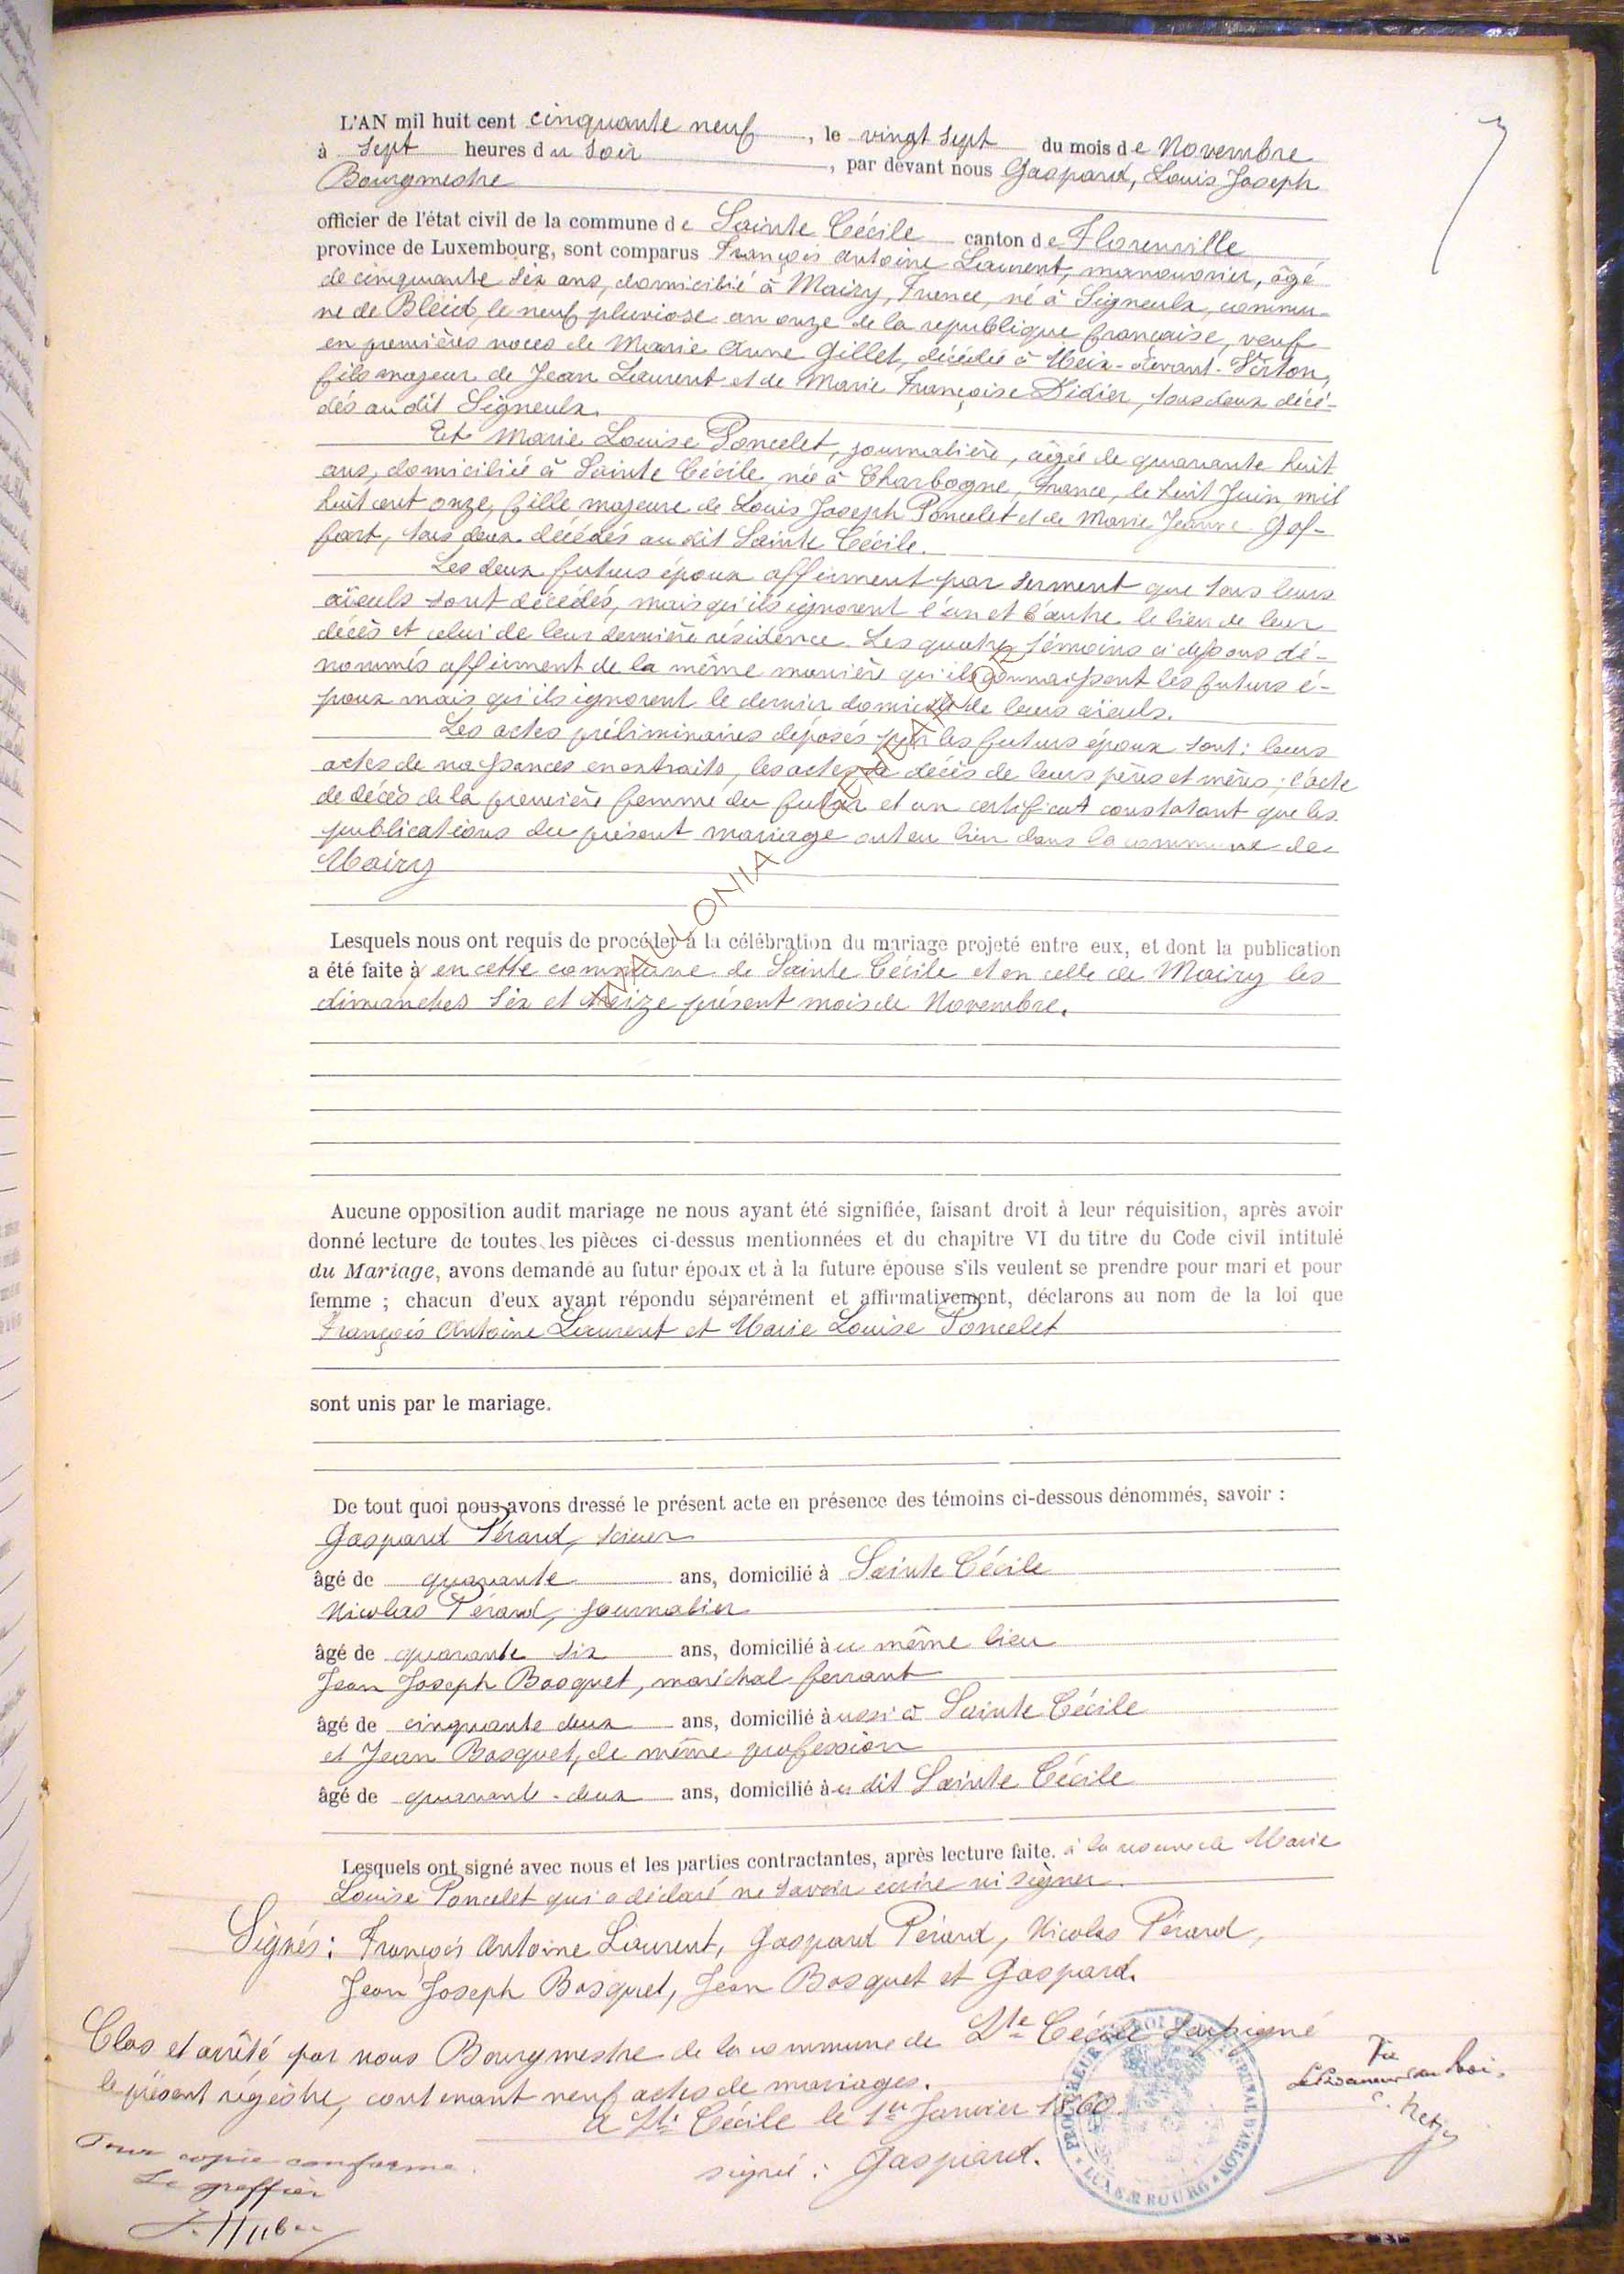 L'AN mil huit cent cinquante neuf, le vingt sept du mois de Novembre
à sept heures du soir, par devant nous Gaspard, Louis Joseph
Bourgmestre
officier de l'état civil de la commune de Sainte Cécile canton de Florenville
province de Luxembourg, sont comparus François Antoine Laurent, manouvrier, âgé
de cinquante six ans, domicilié à Mairy, France, né à Signeulx, commu-
ne de Bleid, le neuf pluviose an onze de la republique française, veuf
en premières noces de Marie Anne Gillet, décédée à Meix-devant-Virton,
fils majeur de Jean Laurent et de Marie Françoise Didier, tous deux décé-
dés au dit Signeulx.
Et Marie Louise Poncelet, journalière, âgée de quarante huit
ans, domiciliée à Sainte Cécile, née à Charbogne, France, le huit Juin mil
huit cent onze, fille majeure de Louis Joseph Poncelet et de Marie Jeanne Gof-
fart, tous deux décédés au dit Sainte Cécile.
Les deux futurs époux affirment par serment que tous leurs
aïeuls sont décédés, mais qu'ils ignorent l'un et l'autre le lieu de leur
décès et celui de leur dernière résidence. Les quatre témoins ci dessous dé-
nommés affirment de la même manière qu'ils connaissent les futurs é-
poux mais qu'ils ignorent le dernier domicile de leurs aïeuls.
Les actes préliminaires déposés par les futurs époux sont: leurs
actes de naissances en extraits, les actes de décès de leurs pères et mères; l'acte
de décès de la première femme du futur et un certificat constatant que les
publications du présent mariage ont eu lieu dans la commune de
Mairy
WALLONIA GENEALOGY
Lesquels nous ont requis de procéder à la célébration du mariage projeté entre eux, et dont la publication
a été faite à en cette commune de Sainte Cécile et en celle de Mairy les
dimanches six et treize présent mois de Novembre.
Aucune opposition audit mariage ne nous ayant été signifiée, faisant droit à leur réquisition, après avoir
donné lecture de toutes les pièces ci-dessus mentionnées et du chapitre VI du titre du Code civil intitulé
du Mariage, avons demandé au futur époux et à la future épouse s'ils veulent se prendre pour mari et pour
femme ; chacun d'eux ayant répondu séparément et affirmativement, déclarons au nom de la loi que
François Antoine Laurent et Marie Louise Poncelet
sont unis par le mariage.
De tout quoi nous avons dressé le présent acte en présence des témoins ci-dessous dénommés, savoir :
Gaspard Pérard, scieur
âgé de quarante ans, domicilié à Sainte Cécile
Nicolas Pérard, journalier
âgé de quarante six ans, domicilié àu même lieu
Jean Joseph Bosquet, maréchal ferrant
âgé de cinquante deux ans, domicilié àussi à Sainte Cécile
et Jean Bosquet, de même profession
âgé de quarante-deux ans, domicilié àu dit Sainte Cécile
Lesquels ont signé avec nous et les parties contractantes, après lecture faite. à la Marie
Louise Poncelet qui a déclaré ne savoir écrire ni signer.
Signés: François Antoine Laurent, Gaspard Pérard, Nicolas Pérard,
Jean Joseph Bosquet, Jean Bosquet et Gaspard.
Clos et arrêté par nous Bourgmestre de la commune de Ste Cécile soussigné
le présent régistre, contenant neuf actes de mariages.
a Ste Cécile le 1er Janvier 1860.
signé: Gaspard.
Pour copie conforme.
Le greffier
PROCUREUR DU ROI TRIBUNAL D'ARLON LUXEMBOURG
Vu
Le Procureur du Roi.